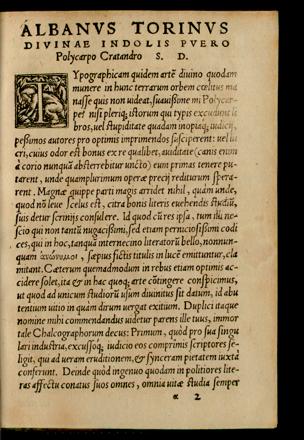 ALBANVS TORINVS
DIVINAE INDOLIS PVERO
Polycarpo Cratandro S. D.
TYpographicam quidem artē diuino quodam
munere in hunc terrarum orbem cœlitus ma
nasse quis non uideat, suauissime mi Polycar
pe? nisi pleriq; istorum qui typis excudunt li
bros, uel stupiditate quadam inopiaq; iudicij,
pessimos autores pro optimis imprimendos susciperent: uel lu
cri, cuius odor est bonus ex re qualibet, auiditate (canis enim
à corio nunquā absterrebitur uncto) eum primas tenere pu-
tarent, unde quamplurimum operæ precij rediturum spera-
rent. Magnæ quippe parti magis arridet nihil, quàm unde,
quod nō leue scelus est, citra bonis literis euehendis studiū,
suis detur scrinijs consulere. Id quod cū res ipsa, tum illi ne-
scio qui non tantū nugacissimi, sed etiam perniciosissimi codi
ces, qui in hoc, tanquā internecino literatorū bello, nonnun-
quam ἀνώνυμοι, sæpius fictis titulis in lucē emittuntur, cla
mitant. Cæterum quemadmodum in rebus etiam optimis ac-
cidere solet, ita & in hac quoq; arte cōtingere conspicimus,
ut quod ad unicum studiorū usum diuinitus sit datum, id abu
tentium uitio in quàm dirum uergat exitium. Duplici itaque
nomine mihi commendandus uidetur parens ille tuus, immor
tale Chalcographorum decus: Primum, quòd pro sua singu
lari industria, excussoq; iudicio eos comprimis scriptores se-
ligit, qui ad ueram eruditionem, & synceram pietatem iuxtà
conferunt. Deinde quòd ingenuo quodam in politiores lite-
ras affectu conatus suos omnes, omnia uitæ studia semper
α 2